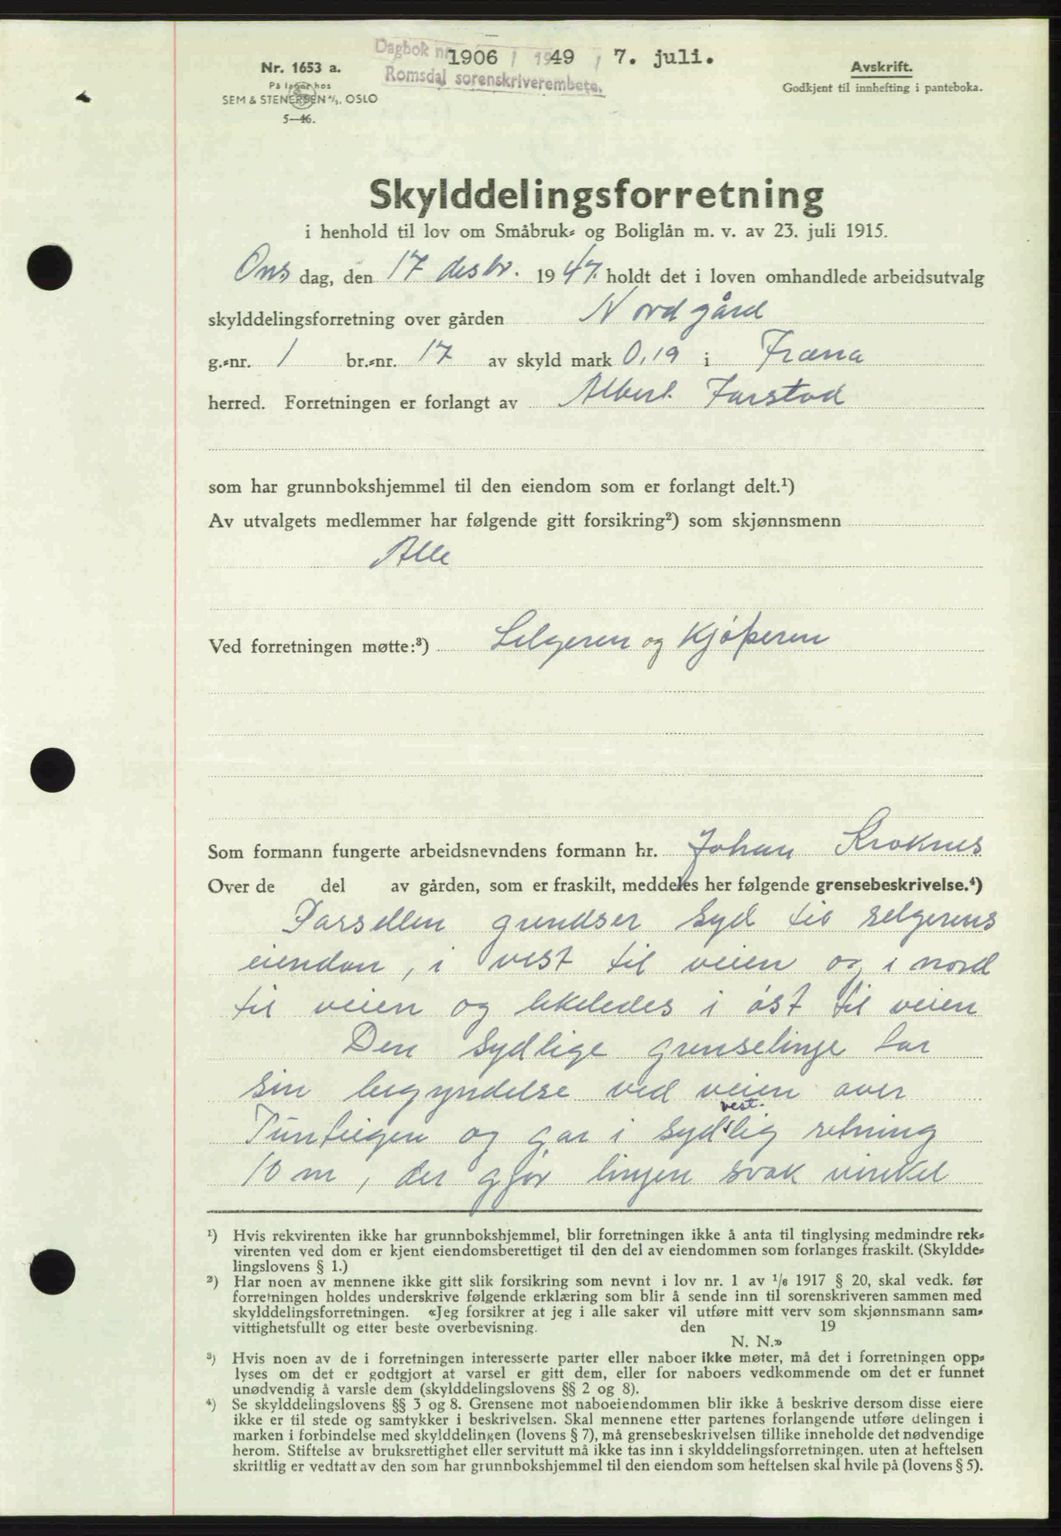 Dagbok nr. 1906 / 1949 / 7. juli.
Romsdal sorenskriverembete.
Nr. 1653 a.
På lager hos
SEM & STENERSEN A/S, OSLO
5—46.
Avskrift.
Godkjent til innhefting i panteboka.
Skylddelingsforretning
i henhold til lov om Småbruk- og Boliglån m. v. av 23. juli 1915.
Ons dag, den 17 desbr. 1947. holdt det i loven omhandlede arbeidsutvalg
skylddelingsforretning over gården Nordgård
g.-nr. 1 br.-nr. 17 av skyld mark 0,19 i Fræna
herred. Forretningen er forlangt av Albert Farstad
som har grunnbokshjemmel til den eiendom som er forlangt delt.¹)
Av utvalgets medlemmer har følgende gitt forsikring²) som skjønnsmenn
Alle
Ved forretningen møtte:³) Selgeren og Kjøperen
Som formann fungerte arbeidsnevndens formann hr. Johan Kroknes
Over de del av gården, som er fraskilt, meddeles her følgende grensebeskrivelse.⁴)
Parsellen grendser syd til selgerens
eiendon, i vest til veien og i nord
til veien og likeledes i øst til veien
Den sydlige grenselinje har
sin begyndelse ved veien over
vest.
Tunteigen og gar i sydlig retning
10 m, der gjør linjen svak vinkel
¹) Hvis rekvirenten ikke har grunnbokshjemmel, blir forretningen ikke å anta til tinglysing medmindre rek-
virenten ved dom er kjent eiendomsberettiget til den del av eiendommen som forlanges fraskilt. (Skyldde-
lingslovens § 1.)
²) Har noen av mennene ikke gitt slik forsikring som nevnt i lov nr. 1 av 1/6 1917 § 20, skal vedk. før
forretningen holdes underskrive følgende erklæring som blir å sende inn til sorenskriveren sammen med
skylddelingsforretningen. «Jeg forsikrer at jeg i alle saker vil utføre mitt verv som skjønnsmann sam-
vittighetsfullt og etter beste overbevisning. den 19
N. N.»
³) Hvis noen av de i forretningen interesserte parter eller naboer ikke møter, må det i forretningen opp-
lyses om det er godtgjort at varsel er gitt dem, eller for naboers vedkommende om det er funnet
unødvendig å varsle dem (skylddelingslovens §§ 2 og 8).
⁴) Se skylddelingslovens §§ 3 og 8. Grensene mot naboeiendommen blir ikke å beskrive dersom disse eiere
ikke er til stede og samtykker i beskrivelsen. Skal mennene etter partenes forlangende utføre delingen i
marken i forbindelse med skylddelingen (lovens § 7), må grensebeskrivelsen tillike inneholde det nødvendige
herom. Stiftelse av bruksrettighet eller servitutt må ikke tas inn i skylddelingsforretningen. uten at heftelsen
skriftlig er vedtatt av den som har grunnbokshjemmel til den eiendom som heftelsen skal hvile på (lovens § 5).